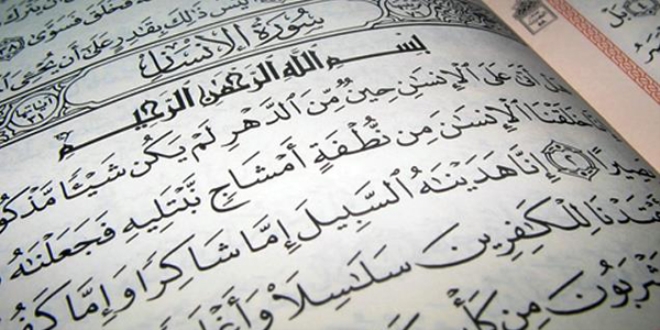 فَخَلَقَ فَسَوَّىٰ
أَلَيْسَ ذَٰلِكَ بِقَٰدِرٍ عَلَىٰٓ أَن يُحْـِۧىَ
سُورَةُ الإِنسَان
آياتها ٣١
بِسْمِ اللَّهِ الرَّحْمَٰنِ الرَّحِيمِ
هَلْ أَتَىٰ عَلَى ٱلْإِنسَٰنِ حِينٌ مِّنَ ٱلدَّهْرِ لَمْ يَكُن شَيْـًٔا مَّذْكُو
خَلَقْنَا ٱلْإِنسَٰنَ مِن نُّطْفَةٍ أَمْشَاجٍ نَّبْتَلِيهِ فَجَعَلْنَٰهُ
صِيرًا ٢ إِنَّا هَدَيْنَٰهُ ٱلسَّبِيلَ إِمَّا شَاكِرًا وَإِمَّا كَفُو
عْتَدْنَا لِلْكَٰفِرِينَ سَلَٰسِلَا۟ وَأَغْلَٰ
شْرَبُونَ مِن كَأْسٍ